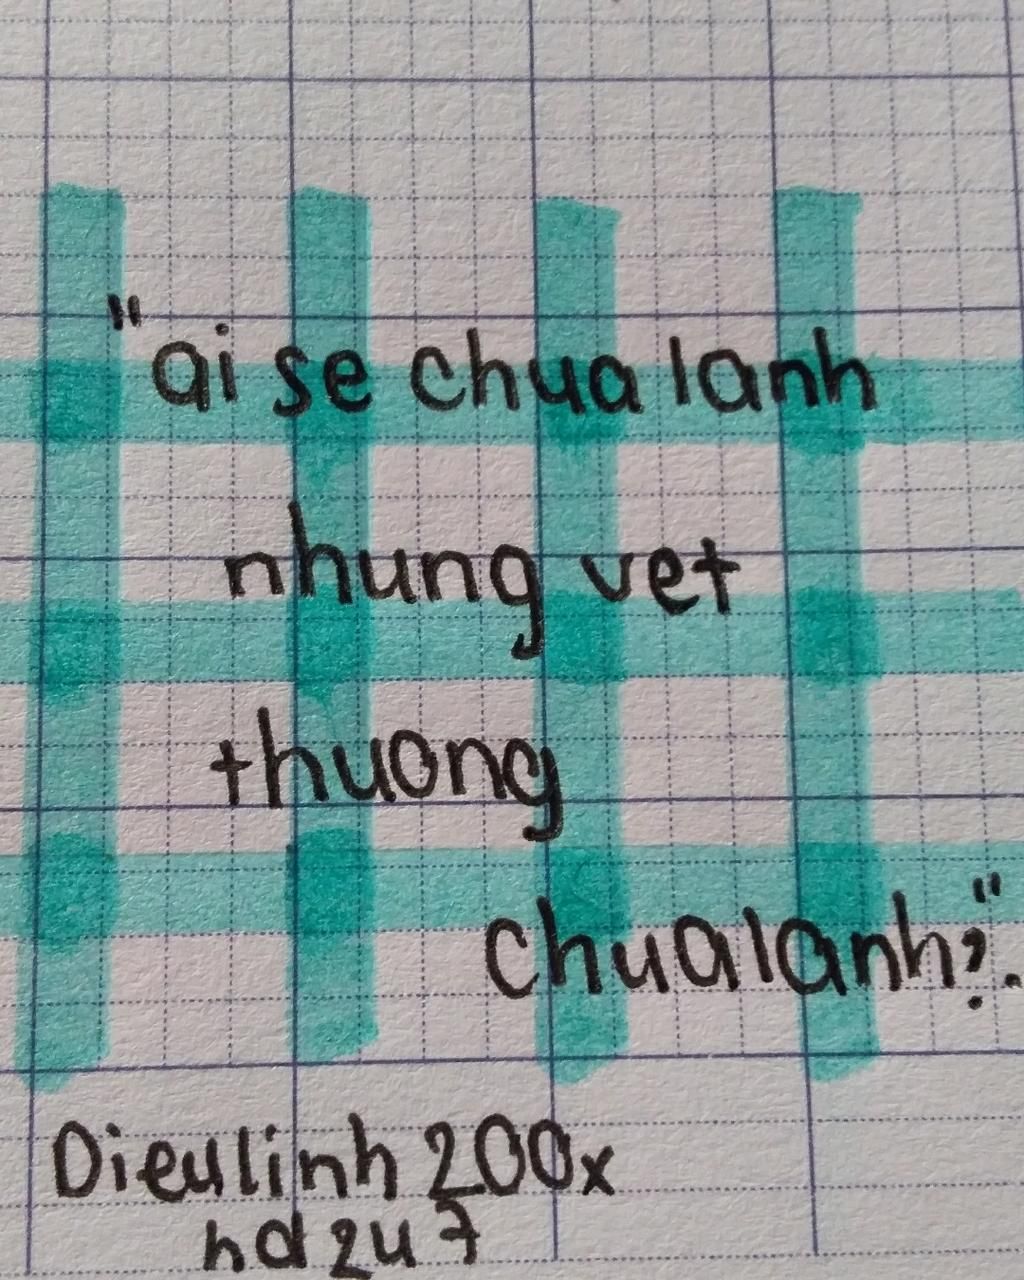 "ai se chua lanh
nhung vet
thuong
chua lanh?".
Dieulinh 200x
hd 2u 7